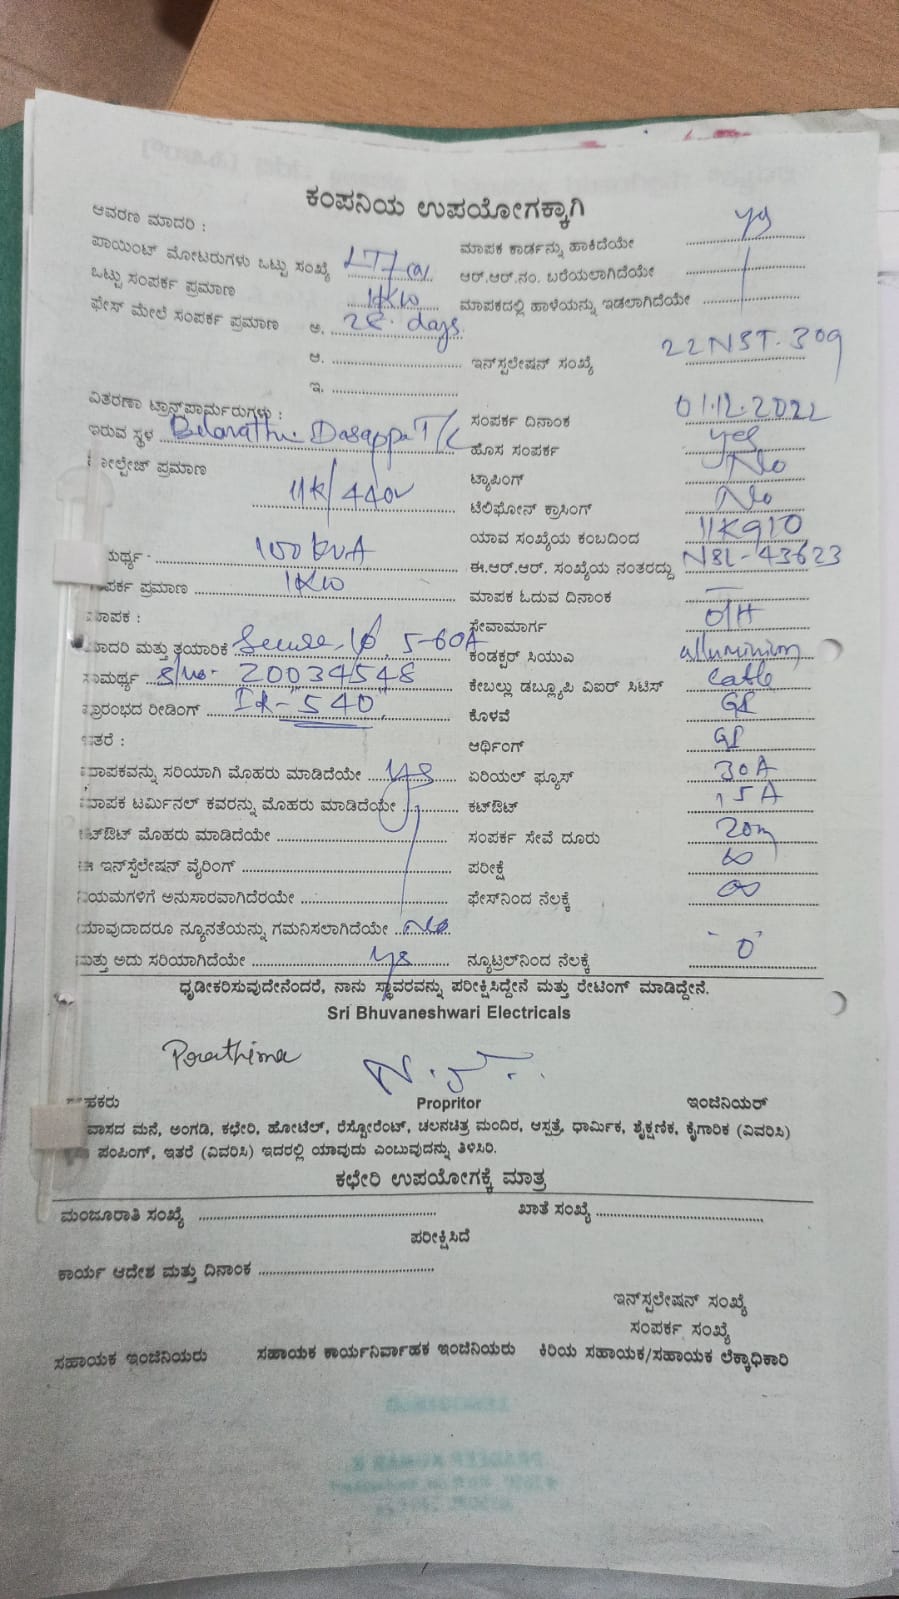 ಕಂಪನಿಯ ಉಪಯೋಗಕ್ಕಾಗಿ
ಆವರಣ ಮಾದರಿ :
ಮಾಪಕ ಕಾರ್ಡನ್ನು ಹಾಕಿದೆಯೇ yes
ಪಾಯಿಂಟ್ ಮೋಟರುಗಳು ಒಟ್ಟು ಸಂಖ್ಯೆ
ಆರ್.ಆರ್.ನಂ. ಬರೆಯಲಾಗಿದೆಯೇ
ಒಟ್ಟು ಸಂಪರ್ಕ ಪ್ರಮಾಣ 1KW
ಮಾಪಕದಲ್ಲಿ ಹಾಳೆಯನ್ನು ಇಡಲಾಗಿದೆಯೇ
ಫೇಸ್ ಮೇಲೆ ಸಂಪರ್ಕ ಪ್ರಮಾಣ ಅ. 28. days
ಆ. ಇನ್‌ಸ್ಪಲೇಷನ್ ಸಂಖ್ಯೆ 22NST.309
ಇ.
ವಿತರಣಾ ಟ್ರಾನ್ಸ್‌ಫಾರ್ಮರುಗಳು :
ಸಂಪರ್ಕ ದಿನಾಂಕ 01.12.2022
ಇರುವ ಸ್ಥಳ Dasappa T/C
ಹೊಸ ಸಂಪರ್ಕ yes
ವೋಲ್ಟೇಜ್ ಪ್ರಮಾಣ 11K/440v
ಟ್ಯಾಪಿಂಗ್ No
ಟೆಲಿಫೋನ್ ಕ್ರಾಸಿಂಗ್ No
ಯಾವ ಸಂಖ್ಯೆಯ ಕಂಬದಿಂದ 11K910
ಮರ್ಥ್ಯ 100 KVA
ಈ.ಆರ್.ಆರ್. ಸಂಖ್ಯೆಯ ನಂತರದ್ದು NBL-43623
ಪರ್ಕ ಪ್ರಮಾಣ 1KW
ಮಾಪಕ ಓದುವ ದಿನಾಂಕ —
ಮಾಪಕ :
ಸೇವಾಮಾರ್ಗ O/H
ಮಾದರಿ ಮತ್ತು ತಯಾರಿಕೆ Secure 1φ, 5-60A
ಕಂಡಕ್ಟರ್ ಸಿಯುಎ alluminium
ಸಾಮರ್ಥ್ಯ S/No- 20034548
ಕೇಬಲ್ಲು ಡಬ್ಲ್ಯೂಪಿ ವಿಐರ್ ಸಿಟಿಸ್ Cable
ಪ್ರಾರಂಭದ ರೀಡಿಂಗ್ IR- "540"
ಕೊಳವೆ GI
ಇತರೆ :
ಆರ್ಥಿಂಗ್ GI
ಮಾಪಕವನ್ನು ಸರಿಯಾಗಿ ಮೊಹರು ಮಾಡಿದೆಯೇ yes
ಏರಿಯಲ್ ಫ್ಯೂಸ್ 30A
ಮಾಪಕ ಟರ್ಮಿನಲ್ ಕವರನ್ನು ಮೊಹರು ಮಾಡಿದೆಯೇ
ಕಟ್‌ಔಟ್ 15A
ಕಟ್‌ಔಟ್ ಮೊಹರು ಮಾಡಿದೆಯೇ
ಸಂಪರ್ಕ ಸೇವೆ ದೂರು 20m
ಇನ್‌ಸ್ಟೆಲೇಷನ್ ವೈರಿಂಗ್
ಪರೀಕ್ಷೆ ∞
ನಿಯಮಗಳಿಗೆ ಅನುಸಾರವಾಗಿದೆರಯೇ
ಫೇಸ್‌ನಿಂದ ನೆಲಕ್ಕೆ ∞
ಯಾವುದಾದರೂ ನ್ಯೂನತೆಯನ್ನು ಗಮನಿಸಲಾಗಿದೆಯೇ No
ಮತ್ತು ಅದು ಸರಿಯಾಗಿದೆಯೇ yes
ನ್ಯೂಟ್ರಲ್‌ನಿಂದ ನೆಲಕ್ಕೆ "0"
ಧೃಡೀಕರಿಸುವುದೇನೆಂದರೆ, ನಾನು ಸ್ಥಾವರವನ್ನು ಪರೀಕ್ಷಿಸಿದ್ದೇನೆ ಮತ್ತು ರೇಟಿಂಗ್ ಮಾಡಿದ್ದೇನೆ.
Sri Bhuvaneshwari Electricals
ಹಕರು Propritor ಇಂಜಿನಿಯರ್
ವಾಸದ ಮನೆ, ಅಂಗಡಿ, ಕಛೇರಿ, ಹೋಟೆಲ್, ರೆಸ್ಟೋರೆಂಟ್, ಚಲನಚಿತ್ರ ಮಂದಿರ, ಆಸ್ಪತ್ರೆ, ಧಾರ್ಮಿಕ, ಶೈಕ್ಷಣಿಕ, ಕೈಗಾರಿಕ (ವಿವರಿಸಿ)
ಪಂಪಿಂಗ್, ಇತರೆ (ವಿವರಿಸಿ) ಇದರಲ್ಲಿ ಯಾವುದು ಎಂಬುವುದನ್ನು ತಿಳಿಸಿರಿ.
ಕಛೇರಿ ಉಪಯೋಗಕ್ಕೆ ಮಾತ್ರ
ಮಂಜೂರಾತಿ ಸಂಖ್ಯೆ ಖಾತೆ ಸಂಖ್ಯೆ
ಪರೀಕ್ಷಿಸಿದೆ
ಕಾರ್ಯ ಆದೇಶ ಮತ್ತು ದಿನಾಂಕ
ಇನ್‌ಸ್ಪಲೇಷನ್ ಸಂಖ್ಯೆ
ಸಂಪರ್ಕ ಸಂಖ್ಯೆ
ಸಹಾಯಕ ಇಂಜಿನಿಯರು ಸಹಾಯಕ ಕಾರ್ಯನಿರ್ವಾಹಕ ಇಂಜಿನಿಯರು ಕಿರಿಯ ಸಹಾಯಕ/ಸಹಾಯಕ ಲೆಕ್ಕಾಧಿಕಾರಿ